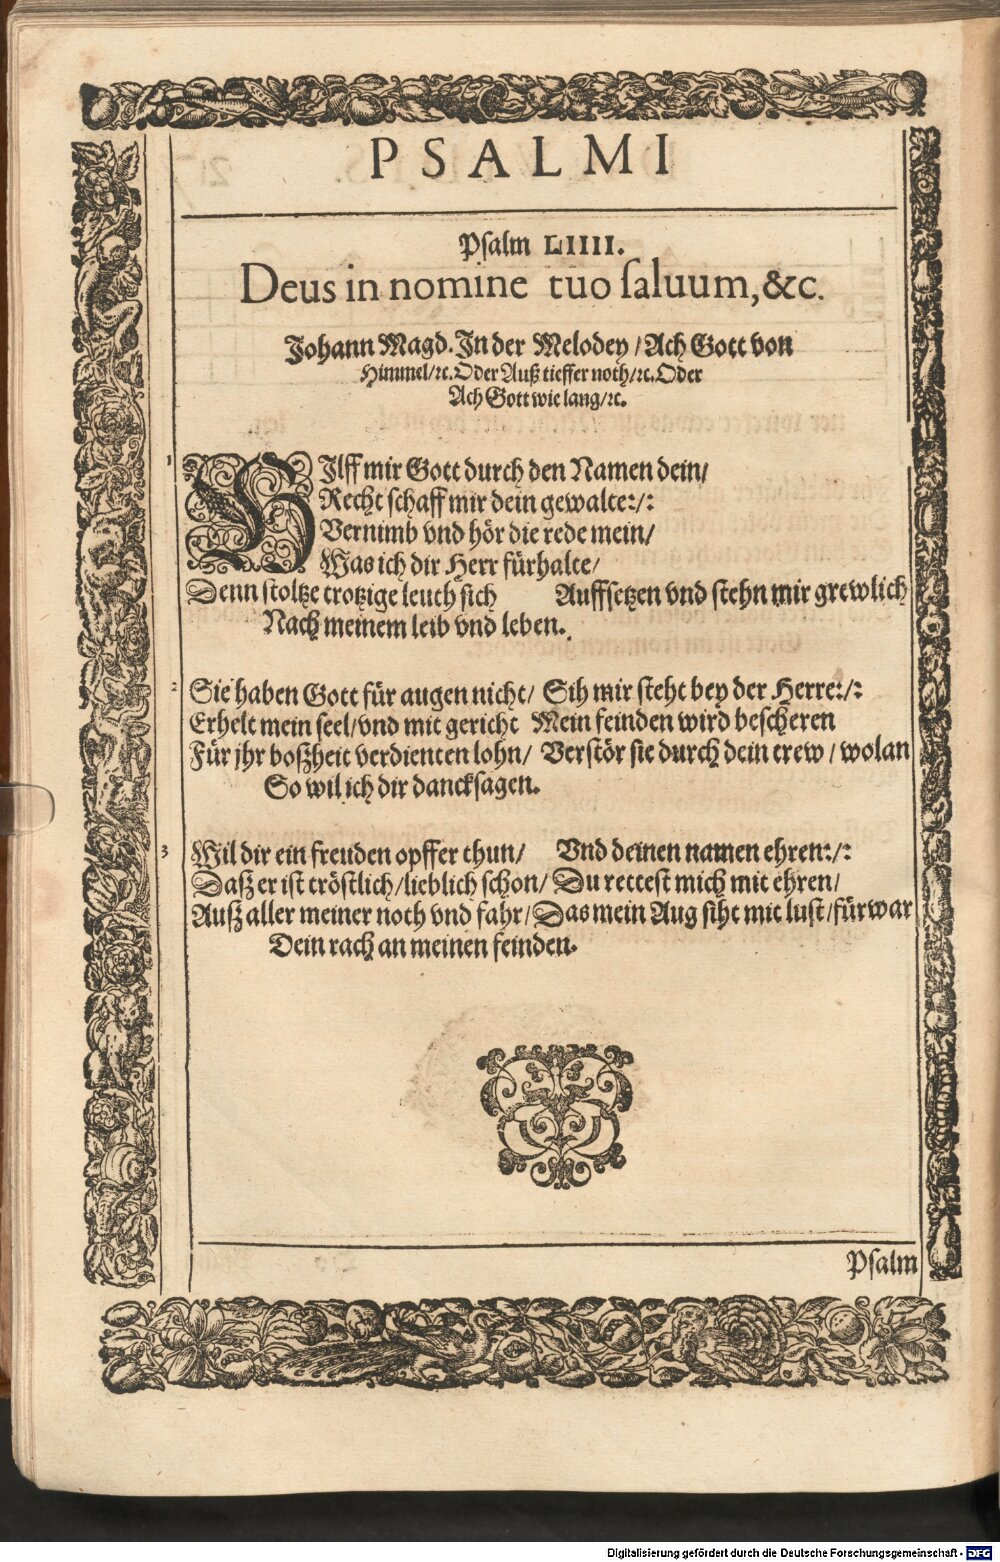 PSALMI
Psalm LIIII.
Deus in nomine tuo saluum, &c.
Johann Magd. In der Melodey / Ach Gott von
Himmel / ꝛc. Oder Auß tieffer noth / ꝛc. Oder
Ach Gott wie lang / ꝛc.
1 HIlff mir Gott durch den Namen dein /
Recht schaff mir dein gewalte :/:
Vernimb vnd hör die rede mein /
Was ich dir Herr fürhalte /
Denn stoltze trotzige leuth sich Auffsetzen vnd stehn mir grewlich
Nach meinem leib vnd leben.
2 Sie haben Gott für augen nicht / Sih mir steht bey der Herre :/:
Erhelt mein seel / vnd mit gericht Mein feinden wird bescheren
Für jhr boßheit verdienten lohn / Verstör sie durch dein trew / wolan
So wil ich dir dancksagen.
3 Wil dir ein freuden opffer thun / Vnd deinen namen ehren :/:
Daß er ist tröstlich / lieblich schon / Du rettest mich mit ehren /
Auß aller meiner noth vnd fahr / Das mein Aug siht mit lust / fürwar
Dein rach an meinen feinden.
Psalm
Digitalisierung gefördert durch die Deutsche Forschungsgemeinschaft - DFG